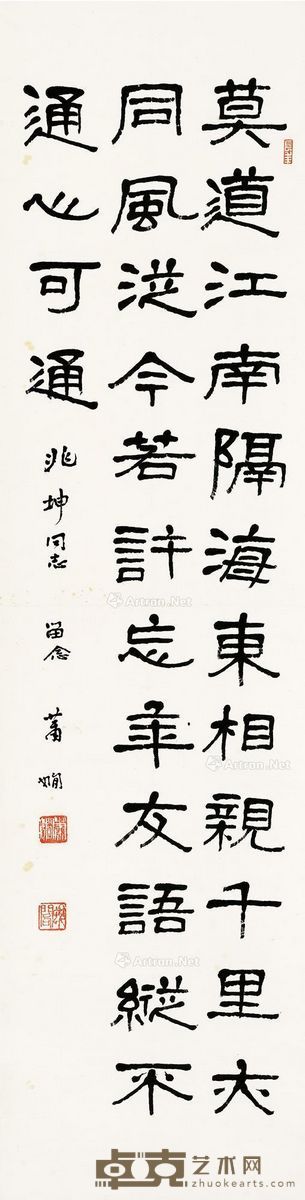 莫道江南隔海東相親千里亦
同風從今若許忘年友語縱不
通心可通
兆坤同志 留念 蕭嫻
Artron.Net
Artron.Net
Artron.Net
Artron.Net
卓克艺术网
zhuokearts.com